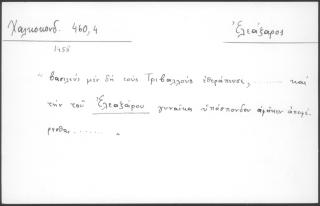 Χαλκοκονδ. 460,4 Ἐλεάζαρος
1458
" βασιλεὺς μὲν δὴ τοὺς Τριβαλλοὺς ἐθεράπευσε, ......... καὶ
τὴν τοῦ Ἐλεαζάρου γυναῖκα ὑπόσπονδον
....... "